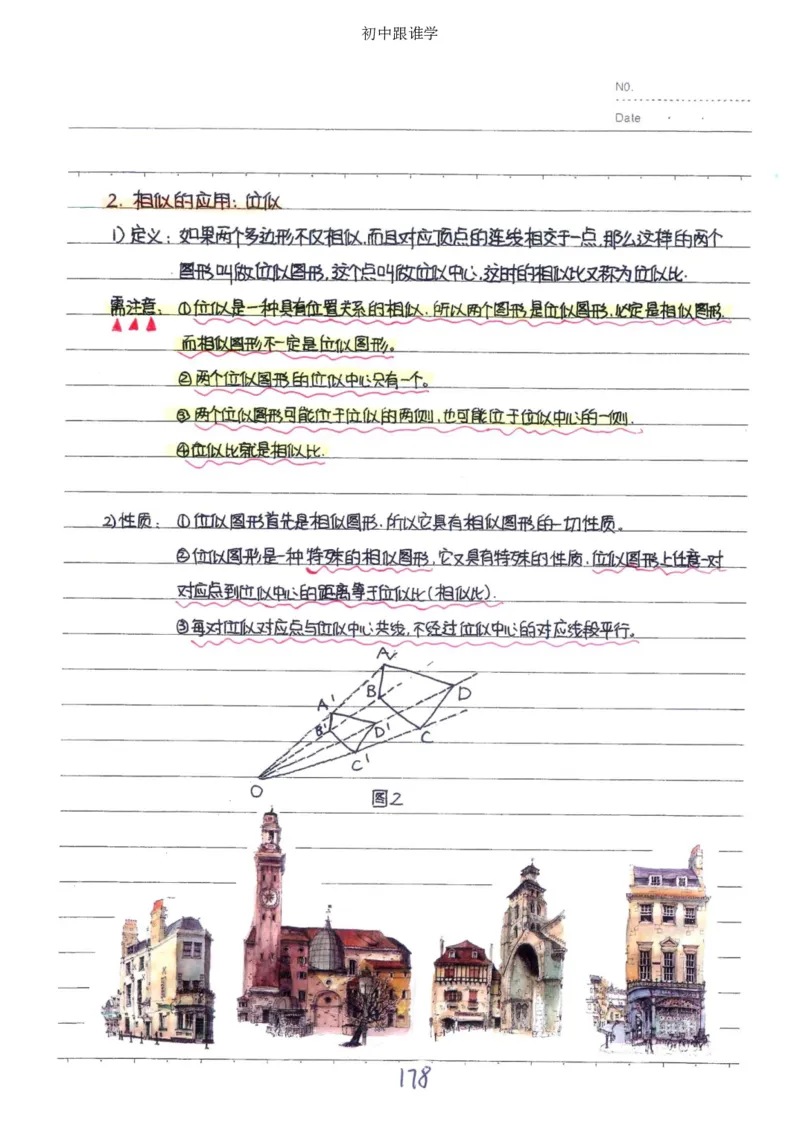 初中跟谁学
NO.
Date
2. 相似的应用: 位似
1) 定义: 如果两个多边形不仅相似,而且对应顶点的连线相交于一点,那么这样的两个
图形叫做位似图形,这个点叫做位似中心,这时的相似比又称为位似比.
需注意: ①位似是一种具有位置关系的相似. 所以两个图形是位似图形,必定是相似图形.
而相似图形不一定是位似图形。
②两个位似图形的位似中心只有一个。
③两个位似图形可能位于位似的两侧,也可能位于位似中心的一侧.
④位似比就是相似比.
2)性质: ①位似图形首先是相似图形. 所以它具有相似图形的一切性质。
②位似图形是一种特殊的相似图形,它又具有特殊的性质.位似图形上任意一对
对应点到位似中心的距离等于位似比(相似比).
③每对位似对应点与位似中心共线,不经过位似中心的对应线段平行。
A
B D
A'
B' D' C
C'
O
图2
178